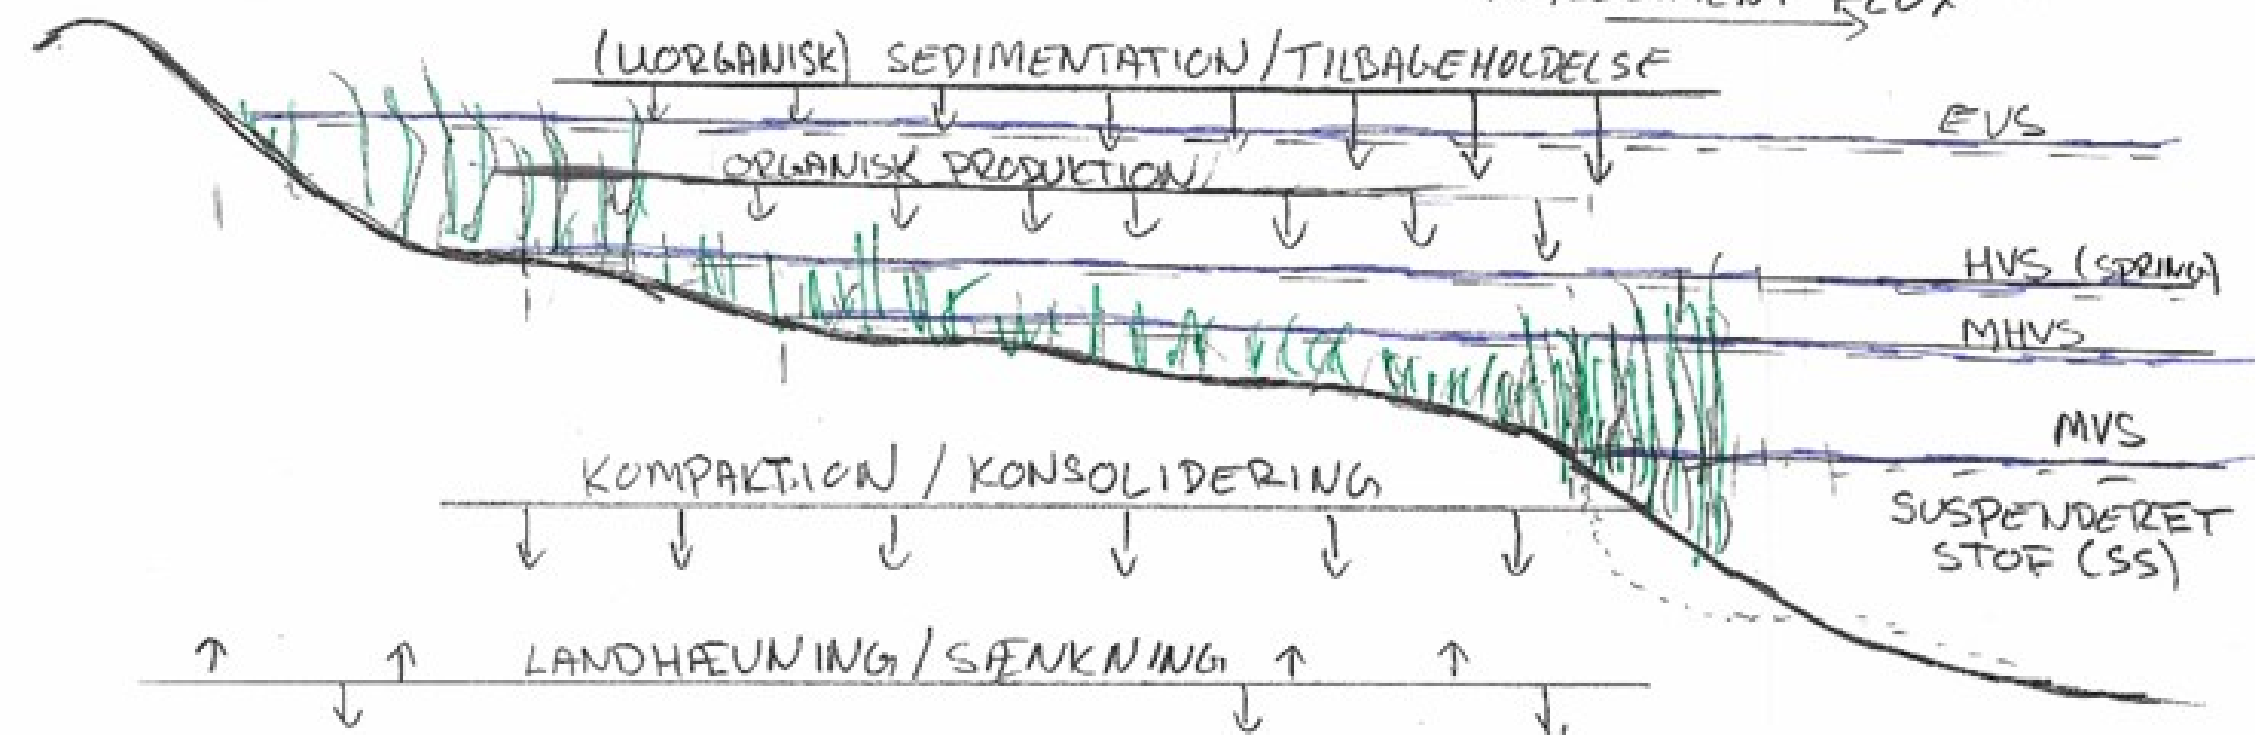 FLUX
(UORGANISK) SEDIMENTATION/TILBAGEHOLDELSE
EVS
ORGANISK PRODUKTION
HVS (SPRING)
MHVS
MVS
KOMPAKTION / KONSOLIDERING
SUSPENDERET
STOF (SS)
LANDHÆVNING/SÆNKNING